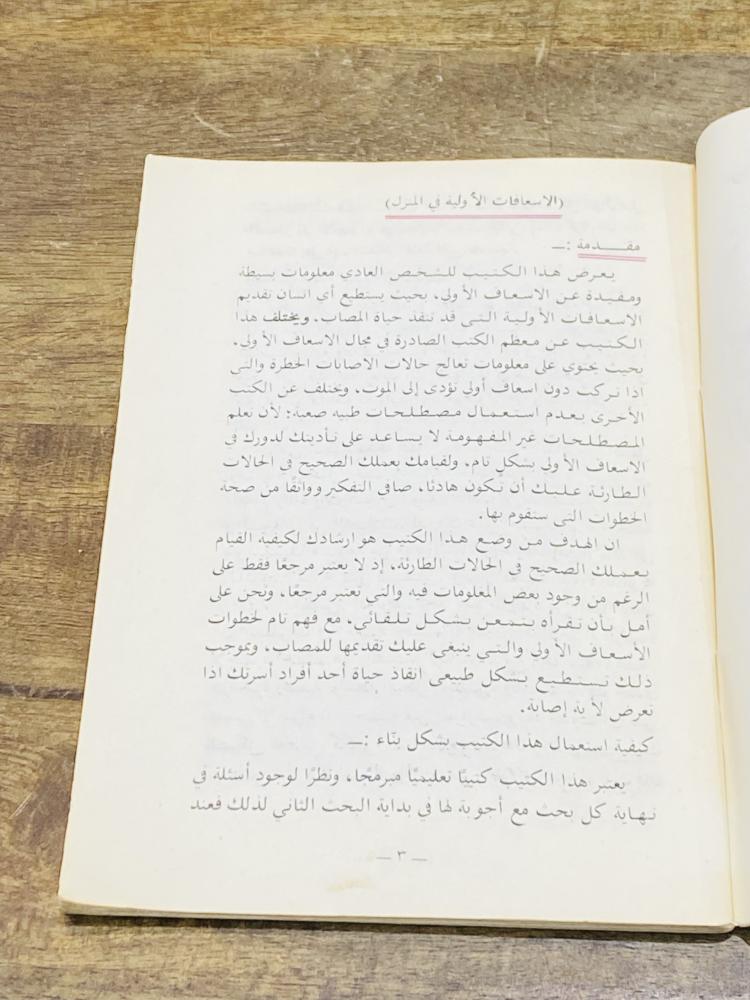 (الاسعافات الأولية في المنزل)
مقـــدمة :ــ
يـعـرض هـذا الـكـتـيـب للـشـخـص العادي معلومات بسيطة
ومـفـيـدة عـن الاسـعـاف الأولي، بـحيث يستطيع أي انسان تقديم
الاسـعـافـات الأولـيـة الـتـى قد تنقذ حياة المصاب. ويختلف هذا
الـكـتـيـب عـن معظم الكتب الصادرة في مجال الاسعاف الأولي،
بحيث يحتوي على معلومات تعالج حالات الاصابات الخطرة والتى
اذا تـركت دون اسعاف أولي تؤدى إلى الموت. ويختلف عن الكتب
الأخـرى بـعـدم اسـتـعـمـال مـصـطـلـحـات طبيه صعبة؛ لأن تعلم
المـصـطـلـحـات غير المـفـهـومـة لا يـسـاعـد على تـأديـتـك لدورك في
الاسعاف الأولي بشكلٍ تام، ولقيامك بعملك الصحيح في الحالات
الـطـارئـة عـلـيـك أن تـكون هادئا، صافي التفكير وواثقًا من صحة
الخطوات التى ستقوم بها.
ان الهدف مـن وضع هـذا الكتيب هو ارشادك لكيفية القيام
بـعـمـلك الصحيح في الحالات الطارئة، إذ لا يعتبر مرجعًا فقط على
الرغم من وجود بعض المعلومات فيه والتي تعتبر مرجعًا، ونحن على
أمل بـأن تـقـرأه بـتـمـعـن بـشـكـل تـلـقـائي، مع فهم تام لخطوات
الأسـعـاف الأولي والـتـي ينبغى عليك تقديمها للمصاب، وبموجب
ذلـك تـسـتـطـيـع بـشكل طبيعى انقاذ حياة أحد أفراد أسرتك اذا
تعرض لأية إصابة.
كيفية استعمال هذا الكتيب بشكل بنّاء :ــ
يعتبر هذا الكتيب كتيبًا تعليميًا مبرمجًا، ونظرًا لوجود أسئلة في
نـهـاية كل بحث مع أجوبة لها في بداية البحث الثاني لذلك فعند
ــ ٣ ــ